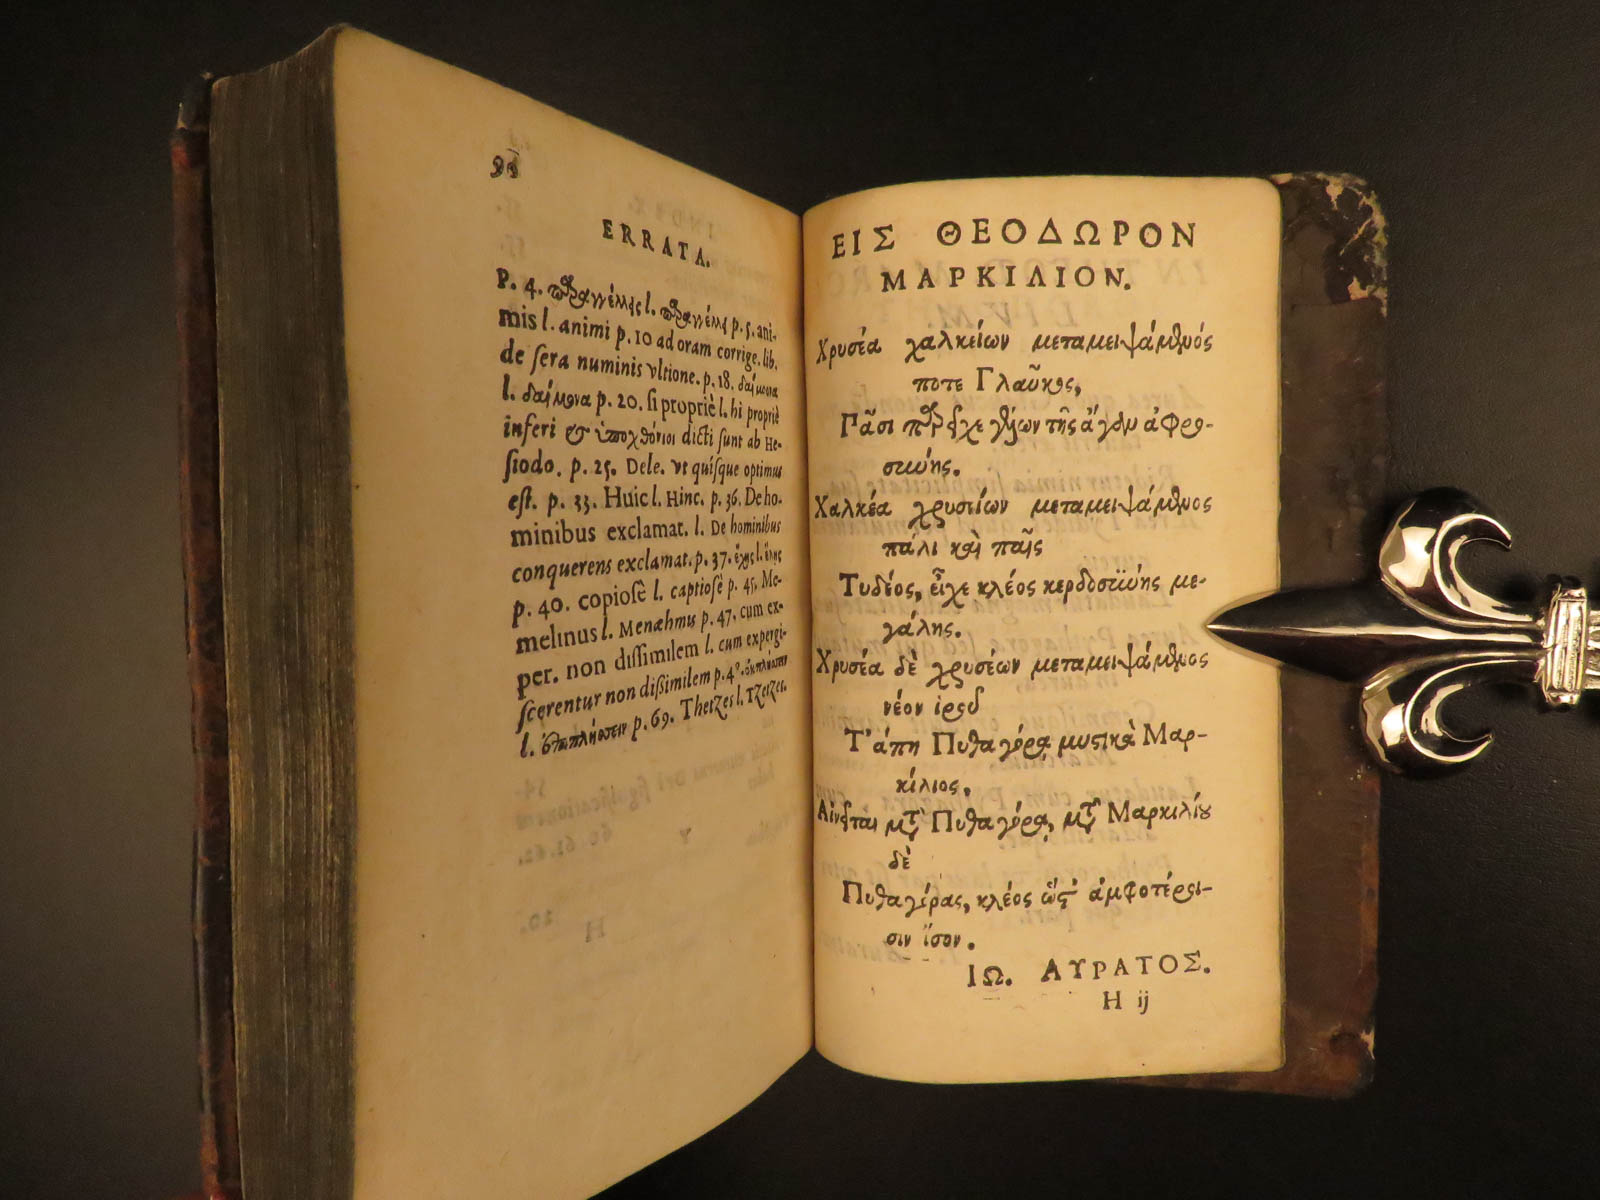 ERRATA.
P. 4. παραγγέλλῃς l. παραγγέλλῃ p. 5. ani-
mis l. animi p. 10 ad oram corrige. lib.
de sera numinis vltione. p. 18. δαίμονα
l. δαίμονα p. 20. si propriè l. hi propriè
inferi & ὑποχθόνιοι dicti sunt ab He-
siodo. p. 25. Dele. vt quisque optimus
est. p. 33. Huic l. Hinc. p. 36. De ho-
minibus exclamat. l. De hominibus
conquerens exclamat. p. 37. l.
p. 40. copiosè l. captiosè p. 45. Me-
melinus l. Menæhmus p. 47. cum ex-
per. non dissimilem l. cum expergi-
scerentur non dissimilem
l. p. 69. Thetzes l. Tzetzes.
ΕΙΣ ΘΕΟΔΩΡΟΝ
ΜΑΡΚΙΛΙΟΝ.
Χρυσέα χαλκείων μεταμειψάμενός
ποτε Γλαῦκος,
Πᾶσι παρέσχε γέλων τῆς ἄγαν ἀφρο-
σύνης.
Χαλκέα χρυσείων μεταμειψάμενος
πάλι καὶ παῖς
Τυδέος, εἶχε κλέος κερδοσύνης με-
γάλης.
Χρυσέα δὲ χρυσέων μεταμειψάμενος
νέον
Τ' ἄπη Πυθαγόρα μυστικὰ Μαρ-
κίλιος.
Αἰνεῖται μετὰ Πυθαγόρα, μετὰ Μαρκιλίου
δὲ
Πυθαγόρας, κλέος ὥστ' ἀμφοτέροι-
σιν ἴσον.
ΙΩ. ΑΥΡΑΤΟΣ.
H ij